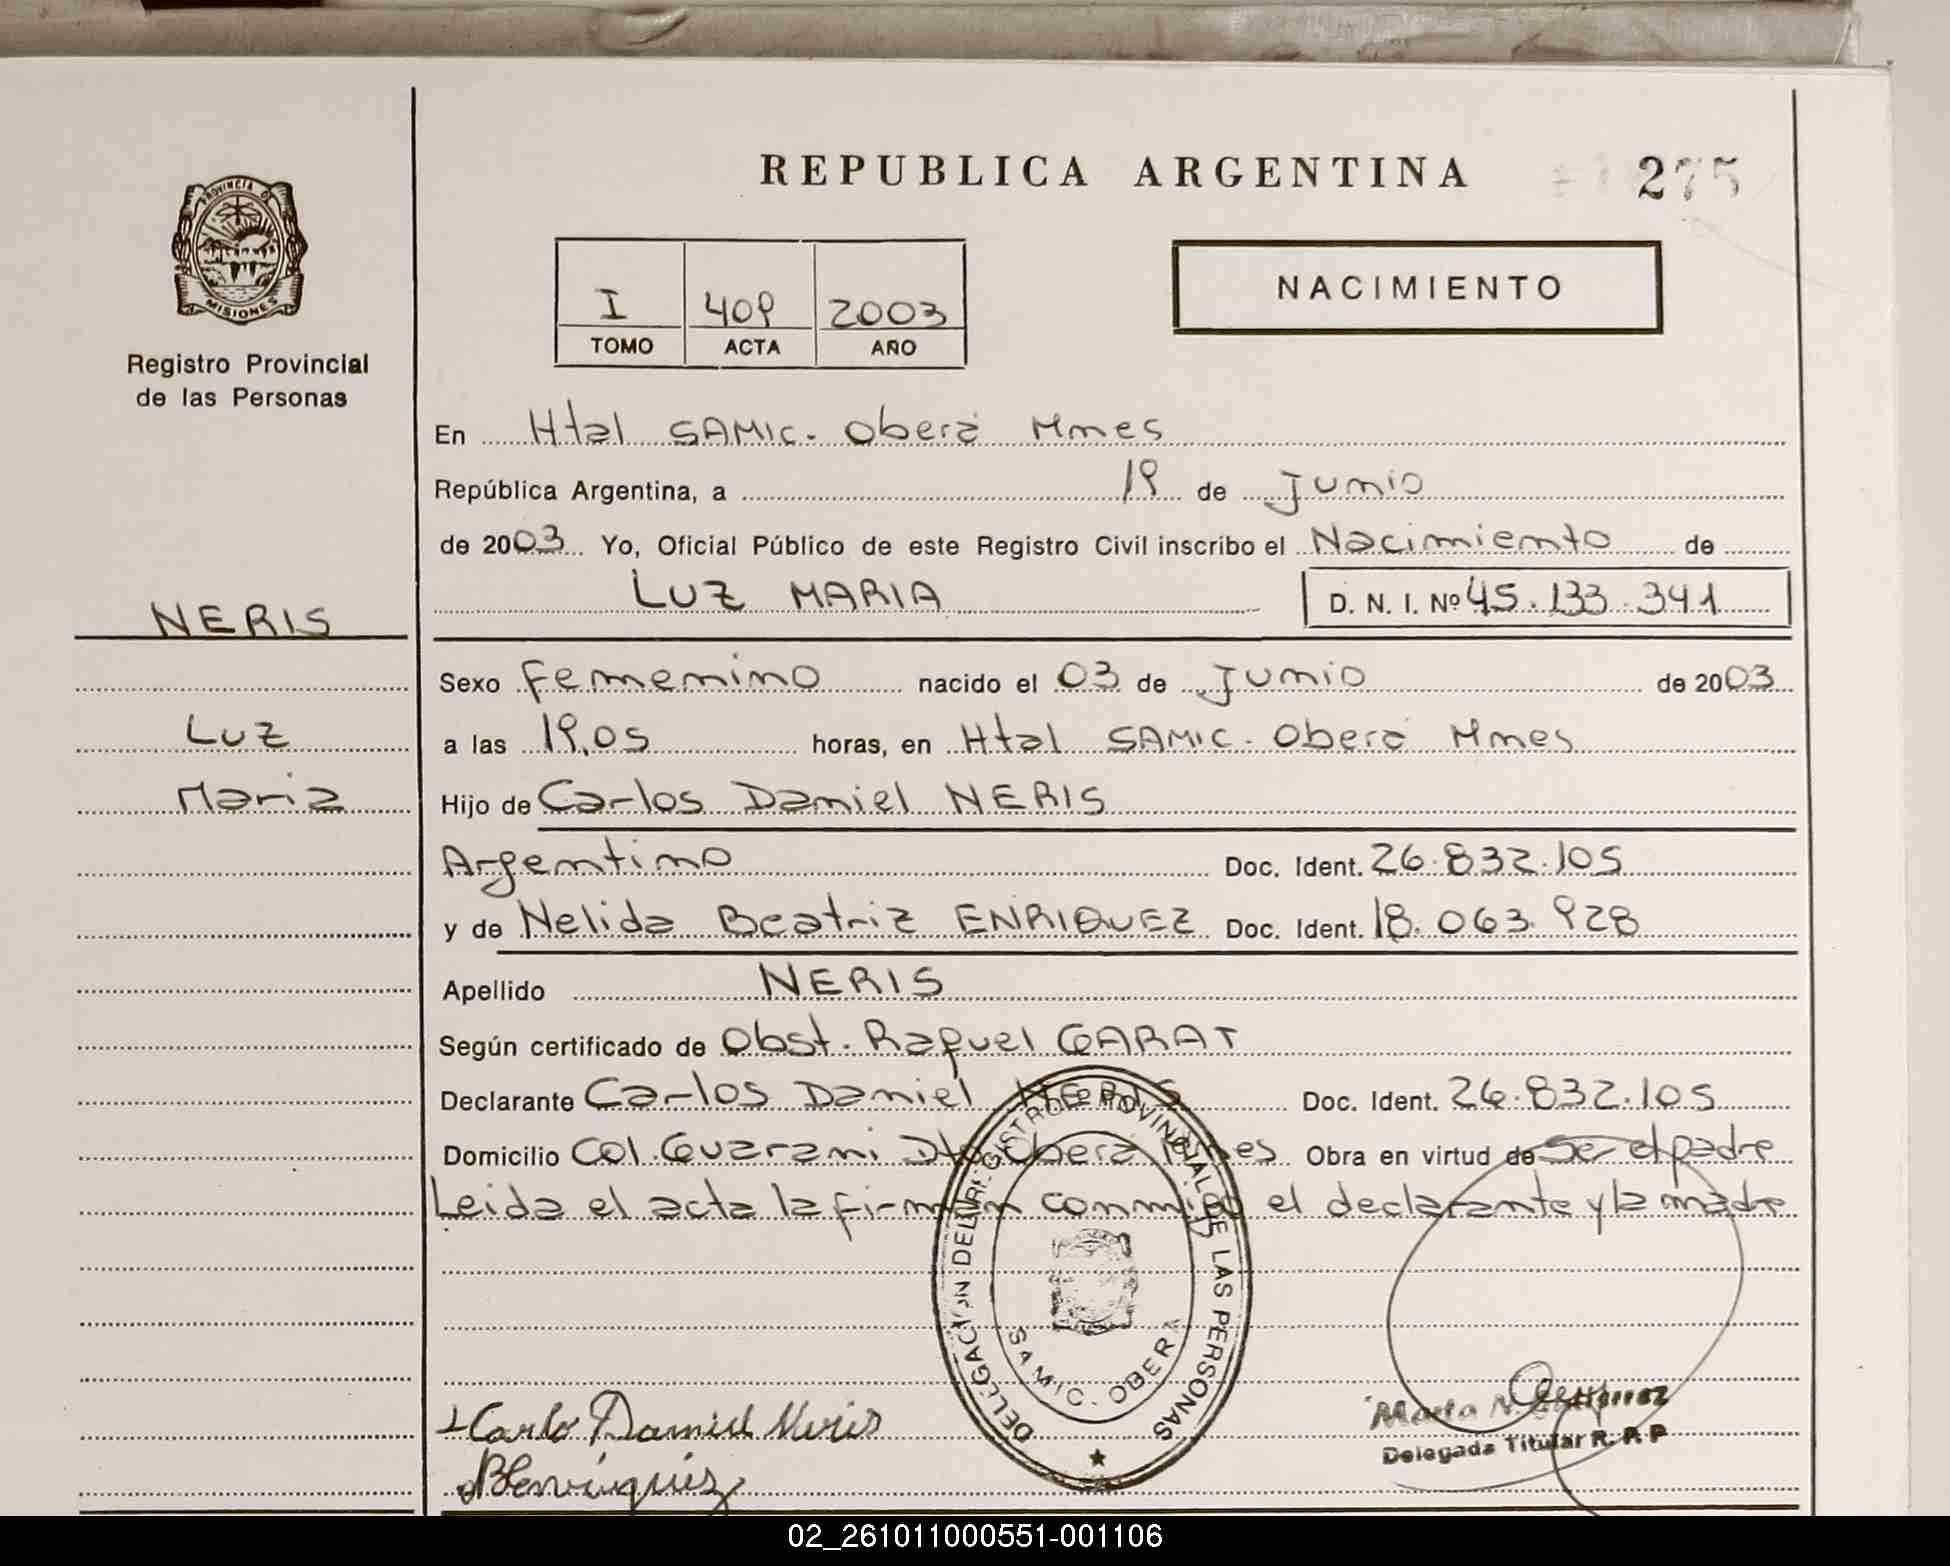 REPUBLICA ARGENTINA
275
PROVINCIA DE
MISIONES
Registro Provincial
de las Personas
I 409 2003
TOMO ACTA AÑO
NACIMIENTO
En Htal SAMIC. Oberá Mnes
República Argentina, a 19 de Junio
de 2003 Yo, Oficial Público de este Registro Civil inscribo el Nacimiento de
LUZ MARIA D. N. I. Nº 45.133.341
NERIS
Luz
Maria
Sexo Femenino nacido el 03 de Junio de 2003
a las 19,05 horas, en Htal SAMIC. Oberá Mnes
Hijo de Carlos Daniel NERIS
Argentino Doc. Ident. 26.832.105
y de Nelida Beatriz ENRIQUEZ Doc. Ident. 18.063.928
Apellido NERIS
Según certificado de Obst. Raquel GARAT
Declarante Carlos Daniel NERIS Doc. Ident. 26.832.105
Domicilio Col. Guarani Dto Oberá Mnes Obra en virtud de Ser el padre
Leida el acta la firman conmigo el declarante y la madre
DELEGACION DEL REGISTRO PROVINCIAL DE LAS PERSONAS
SAMIC. OBERA
Carlo Daniel Neris
Marta N. Gutierrez
Delegada Titular R. P. P
02_261011000551-001106